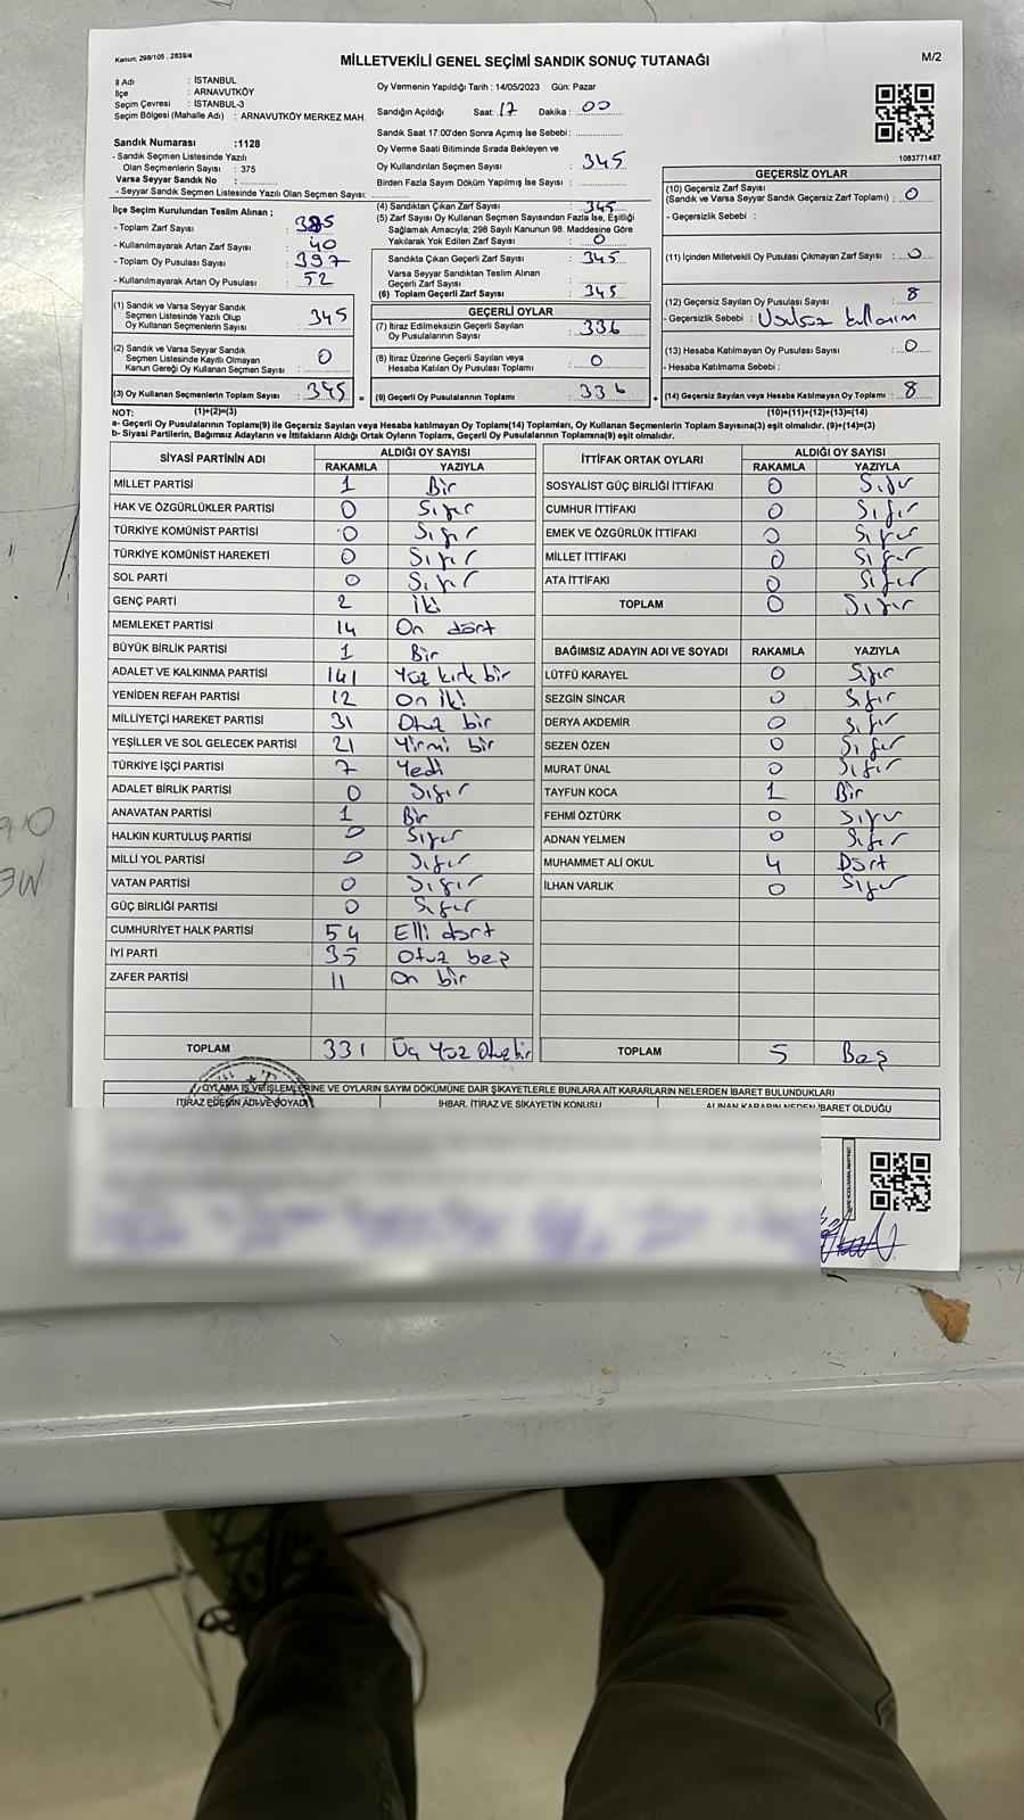 Kanun: 298/105 , 2839/4
MİLLETVEKİLİ GENEL SEÇİMİ SANDIK SONUÇ TUTANAĞI
M/2
İl Adı : İSTANBUL
İlçe : ARNAVUTKÖY
Seçim Çevresi : İSTANBUL-3
Seçim Bölgesi (Mahalle Adı) : ARNAVUTKÖY MERKEZ MAH.
Sandık Numarası :1128
- Sandık Seçmen Listesinde Yazılı
Olan Seçmenlerin Sayısı : 375
Varsa Seyyar Sandık No :
- Seyyar Sandık Seçmen Listesinde Yazılı Olan Seçmen Sayısı:
Oy Vermenin Yapıldığı Tarih : 14/05/2023 Gün: Pazar
Sandığın Açıldığı Saat: 17 Dakika : 00
Sandık Saat 17:00'den Sonra Açımış İse Sebebi :
Oy Verme Saati Bitiminde Sırada Bekleyen ve
Oy Kullandırılan Seçmen Sayısı : 345
Birden Fazla Sayım Döküm Yapılmış İse Sayısı :
1083771487
İlçe Seçim Kurulundan Teslim Alınan ;
- Toplam Zarf Sayısı : 385
- Kullanılmayarak Artan Zarf Sayısı : 40
- Toplam Oy Pusulası Sayısı : 397
- Kullanılmayarak Artan Oy Pusulası : 52
(1) Sandık ve Varsa Seyyar Sandık
Seçmen Listesinde Yazılı Olup
Oy Kullanan Seçmenlerin Sayısı : 345
(2) Sandık ve Varsa Seyyar Sandık
Seçmen Listesinde Kayıtlı Olmayan
Kanun Gereği Oy Kullanan Seçmen Sayısı : 0
(3) Oy Kullanan Seçmenlerin Toplam Sayısı : 345
(4) Sandıktan Çıkan Zarf Sayısı : 345
(5) Zarf Sayısı Oy Kullanan Seçmen Sayısından Fazla İse, Eşitliği
Sağlamak Amacıyla; 298 Sayılı Kanunun 98. Maddesine Göre
Yakılarak Yok Edilen Zarf Sayısı : 0
Sandıkta Çıkan Geçerli Zarf Sayısı : 345
Varsa Seyyar Sandıktan Teslim Alınan
Geçerli Zarf Sayısı :
(6) Toplam Geçerli Zarf Sayısı : 345
GEÇERLİ OYLAR
(7) İtiraz Edilmeksizin Geçerli Sayılan
Oy Pusulalarının Sayısı : 336
(8) İtiraz Üzerine Geçerli Sayılan veya
Hesaba Katılan Oy Pusulası Toplamı : 0
(9) Geçerli Oy Pusulalarının Toplamı : 336
GEÇERSİZ OYLAR
(10) Geçersiz Zarf Sayısı
(Sandık ve Varsa Seyyar Sandık Geçersiz Zarf Toplamı) : 0
- Geçersizlik Sebebi :
(11) İçinden Milletvekili Oy Pusulası Çıkmayan Zarf Sayısı : 0
(12) Geçersiz Sayılan Oy Pusulası Sayısı : 8
- Geçersizlik Sebebi : Usulsüz kullanım
(13) Hesaba Katılmayan Oy Pusulası Sayısı : 0
- Hesaba Katılmama Sebebi :
(14) Geçersiz Sayılan veya Hesaba Katılmayan Oy Toplamı : 8
NOT: (1)+(2)=(3) (10)+(11)+(12)+(13)=(14)
a- Geçerli Oy Pusulalarının Toplamı(9) ile Geçersiz Sayılan veya Hesaba katılmayan Oy Toplam(14) Toplamları, Oy Kullanan Seçmenlerin Toplam Sayısına(3) eşit olmalıdır. (9)+(14)=(3)
b- Siyasi Partilerin, Bağımsız Adayların ve İttifakların Aldığı Ortak Oyların Toplamı, Geçerli Oy Pusulalarının Toplamına(9) eşit olmalıdır.
SİYASİ PARTİNİN ADI ALDIĞI OY SAYISI
RAKAMLA YAZIYLA
MİLLET PARTİSİ 1 Bir
HAK VE ÖZGÜRLÜKLER PARTİSİ 0 Sıfır
TÜRKİYE KOMÜNİST PARTİSİ 0 Sıfır
TÜRKİYE KOMÜNİST HAREKETİ 0 Sıfır
SOL PARTİ 0 Sıfır
GENÇ PARTİ 2 iki
MEMLEKET PARTİSİ 14 On dört
BÜYÜK BİRLİK PARTİSİ 1 Bir
ADALET VE KALKINMA PARTİSİ 141 Yüz kırk bir
YENİDEN REFAH PARTİSİ 12 On iki
MİLLİYETÇİ HAREKET PARTİSİ 31 Otuz bir
YEŞİLLER VE SOL GELECEK PARTİSİ 21 Yirmi bir
TÜRKİYE İŞÇİ PARTİSİ 7 Yedi
ADALET BİRLİK PARTİSİ 0 Sıfır
ANAVATAN PARTİSİ 1 Bir
HALKIN KURTULUŞ PARTİSİ 0 Sıfır
MİLLİ YOL PARTİSİ 0 Sıfır
VATAN PARTİSİ 0 Sıfır
GÜÇ BİRLİĞİ PARTİSİ 0 Sıfır
CUMHURİYET HALK PARTİSİ 54 Elli dört
İYİ PARTİ 35 Otuz beş
ZAFER PARTİSİ 11 On bir
TOPLAM 331 Üç Yüz Otuzbir
İTTİFAK ORTAK OYLARI ALDIĞI OY SAYISI
RAKAMLA YAZIYLA
SOSYALİST GÜÇ BİRLİĞİ İTTİFAKI 0 Sıfır
CUMHUR İTTİFAKI 0 Sıfır
EMEK VE ÖZGÜRLÜK İTTİFAKI 0 Sıfır
MİLLET İTTİFAKI 0 Sıfır
ATA İTTİFAKI 0 Sıfır
TOPLAM 0 Sıfır
BAĞIMSIZ ADAYIN ADI VE SOYADI RAKAMLA YAZIYLA
LÜTFÜ KARAYEL 0 Sıfır
SEZGİN SİNCAR 0 Sıfır
DERYA AKDEMİR 0 Sıfır
SEZEN ÖZEN 0 Sıfır
MURAT ÜNAL 0 Sıfır
TAYFUN KOCA 1 Bir
FEHMİ ÖZTÜRK 0 Sıfır
ADNAN YELMEN 0 Sıfır
MUHAMMET ALİ OKUL 4 Dört
İLHAN VARLIK 0 Sıfır
TOPLAM 5 Beş
OYLAMA İŞ VE İŞLEMLERİNE VE OYLARIN SAYIM DÖKÜMÜNE DAİR ŞİKAYETLERLE BUNLARA AİT KARARLARIN NELERDEN İBARET BULUNDUKLARI
İTİRAZ EDENİN ADI VE SOYADI İHBAR, İTİRAZ VE ŞİKAYETİN KONUSU ALINAN KARARIN NEDEN İBARET OLDUĞU